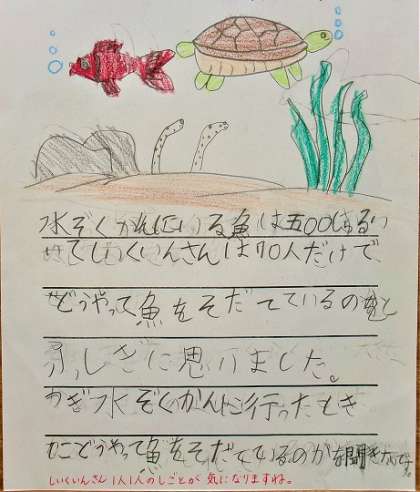 水ぞくかんにいる魚は五〇〇しゅるい
いてしいくいんさんは70人だけで
どうやって魚をそだてているのかなと
ふしぎに思いました。
つぎ水ぞくかんに行ったとき
にどうやって魚をそだてているのかを聞きたいです。
しいくいんさん1人1人のしごとが気になりますね。